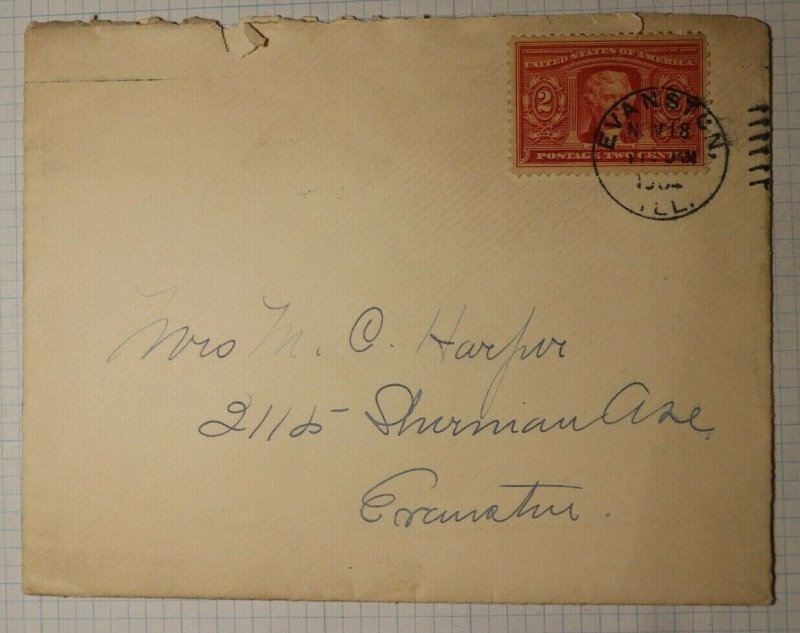 UNITED STATES OF AMERICA
2 2
POSTAGE TWO CENTS
EVANSTON,
1904
ILL.
Mrs M. C. Harper
2115 Sherman Ave
Evanston.